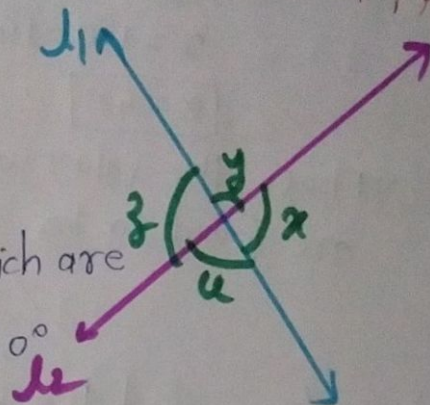 l₁
y
z
x
ich are
u
0°
l₂